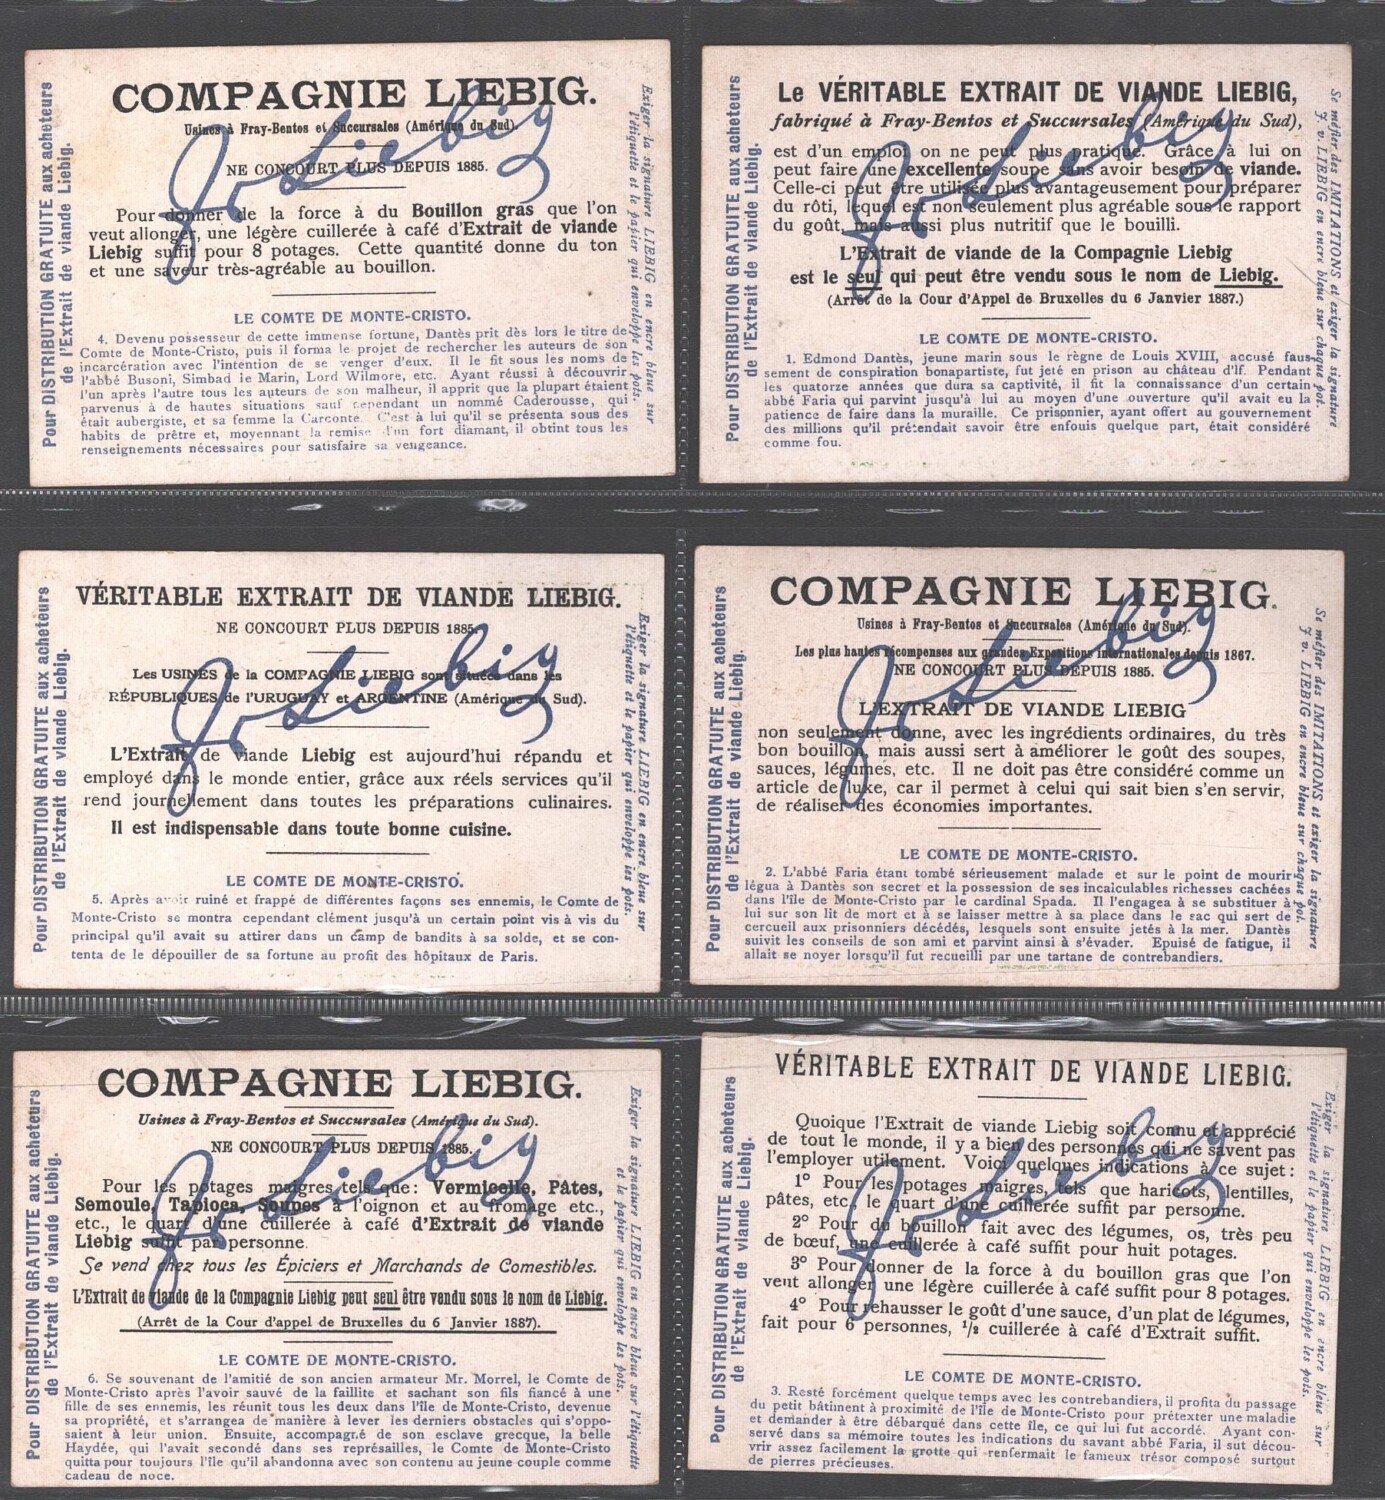 COMPAGNIE LIEBIG.
Usines à Fray-Bentos et Succursales (Amérique du Sud).
NE CONCOURT PLUS DEPUIS 1885.
Pour donner de la force à du Bouillon gras que l'on
veut allonger, une légère cuillerée à café d'Extrait de viande
Liebig suffit pour 8 potages. Cette quantité donne du ton
et une saveur très-agréable au bouillon.
LE COMTE DE MONTE-CRISTO.
4. Devenu possesseur de cette immense fortune, Dantès prit dès lors le titre de
Comte de Monte-Cristo, puis il forma le projet de rechercher les auteurs de son
incarcération avec l'intention de se venger d'eux. Il le fit sous les noms de
l'abbé Busoni, Simbad le Marin, Lord Wilmore, etc. Ayant réussi à découvrir
l'un après l'autre tous les auteurs de son malheur, il apprit que la plupart étaient
parvenus à de hautes situations sauf cependant un nommé Caderousse, qui
était aubergiste, et sa femme la Carconte. C'est à lui qu'il se présenta sous des
habits de prêtre et, moyennant la remise d'un fort diamant, il obtint tous les
renseignements nécessaires pour satisfaire sa vengeance.
Pour DISTRIBUTION GRATUITE aux acheteurs
de l'Extrait de viande Liebig.
Exiger la signature LIEBIG en encre bleue sur
l'étiquette et le papier qui enveloppe les pots.
J v Liebig
Le VÉRITABLE EXTRAIT DE VIANDE LIEBIG,
fabriqué à Fray-Bentos et Succursales (Amérique du Sud),
est d'un emploi on ne peut plus pratique. Grâce à lui on
peut faire une excellente soupe sans avoir besoin de viande.
Celle-ci peut être utilisée plus avantageusement pour préparer
du rôti, lequel est non seulement plus agréable sous le rapport
du goût, mais aussi plus nutritif que le bouilli.
L'Extrait de viande de la Compagnie Liebig
est le seul qui peut être vendu sous le nom de Liebig.
(Arrêt de la Cour d'Appel de Bruxelles du 6 Janvier 1887.)
LE COMTE DE MONTE-CRISTO.
1. Edmond Dantès, jeune marin sous le règne de Louis XVIII, accusé faus-
sement de conspiration bonapartiste, fut jeté en prison au château d'If. Pendant
les quatorze années que dura sa captivité, il fit la connaissance d'un certain
abbé Faria qui parvint jusqu'à lui au moyen d'une ouverture qu'il avait eu la
patience de faire dans la muraille. Ce prisonnier, ayant offert au gouvernement
des millions qu'il prétendait savoir être enfouis quelque part, était considéré
comme fou.
Pour DISTRIBUTION GRATUITE aux acheteurs
de l'Extrait de viande Liebig.
Se méfier des IMITATIONS et exiger la signature
J. v. LIEBIG en encre bleue sur chaque pot.
J v Liebig
VÉRITABLE EXTRAIT DE VIANDE LIEBIG.
NE CONCOURT PLUS DEPUIS 1885.
Les USINES de la COMPAGNIE LIEBIG sont situées dans les
RÉPUBLIQUES de l'URUGUAY et ARGENTINE (Amérique du Sud).
L'Extrait de viande Liebig est aujourd'hui répandu et
employé dans le monde entier, grâce aux réels services qu'il
rend journellement dans toutes les préparations culinaires.
Il est indispensable dans toute bonne cuisine.
LE COMTE DE MONTE-CRISTO.
5. Après avoir ruiné et frappé de différentes façons ses ennemis, le Comte de
Monte-Cristo se montra cependant clément jusqu'à un certain point vis à vis du
principal qu'il avait su attirer dans un camp de bandits à sa solde, et se con-
tenta de le dépouiller de sa fortune au profit des hôpitaux de Paris.
Pour DISTRIBUTION GRATUITE aux acheteurs
de l'Extrait de viande Liebig.
Exiger la signature LIEBIG en encre bleue sur
l'étiquette et le papier qui enveloppe les pots.
J v Liebig
COMPAGNIE LIEBIG.
Usines à Fray-Bentos et Succursales (Amérique du Sud).
Les plus hautes récompenses aux grandes Expositions internationales depuis 1867.
NE CONCOURT PLUS DEPUIS 1885.
L'EXTRAIT DE VIANDE LIEBIG
non seulement donne, avec les ingrédients ordinaires, du très
bon bouillon, mais aussi sert à améliorer le goût des soupes,
sauces, légumes, etc. Il ne doit pas être considéré comme un
article de luxe, car il permet à celui qui sait bien s'en servir,
de réaliser des économies importantes.
LE COMTE DE MONTE-CRISTO.
2. L'abbé Faria étant tombé sérieusement malade et sur le point de mourir
légua à Dantès son secret et la possession de ses incalculables richesses cachées
dans l'île de Monte-Cristo par le cardinal Spada. Il l'engagea à se substituer à
lui sur son lit de mort et à se laisser mettre à sa place dans le sac qui sert de
cercueil aux prisonniers décédés, lesquels sont ensuite jetés à la mer. Dantès
suivit les conseils de son ami et parvint ainsi à s'évader. Epuisé de fatigue, il
allait se noyer lorsqu'il fut recueilli par une tartane de contrebandiers.
Pour DISTRIBUTION GRATUITE aux acheteurs
de l'Extrait de viande Liebig.
Se méfier des IMITATIONS et exiger la signature
J. v. LIEBIG en encre bleue sur chaque pot.
J v Liebig
COMPAGNIE LIEBIG.
Usines à Fray-Bentos et Succursales (Amérique du Sud).
NE CONCOURT PLUS DEPUIS 1885.
Pour les potages maigres tels que: Vermicelle, Pâtes,
Semoule, Tapioca, Soupes à l'oignon et au fromage etc.,
etc., le quart d'une cuillerée à café d'Extrait de viande
Liebig suffit par personne.
Se vend chez tous les Épiciers et Marchands de Comestibles.
L'Extrait de viande de la Compagnie Liebig peut seul être vendu sous le nom de Liebig.
(Arrêt de la Cour d'appel de Bruxelles du 6 Janvier 1887).
LE COMTE DE MONTE-CRISTO.
6. Se souvenant de l'amitié de son ancien armateur Mr. Morrel, le Comte de
Monte-Cristo après l'avoir sauvé de la faillite et sachant son fils fiancé à une
fille de ses ennemis, les réunit tous les deux dans l'île de Monte-Cristo, devenue
sa propriété, et s'arrangea de manière à lever les derniers obstacles qui s'oppo-
saient à leur union. Ensuite, accompagné de son esclave grecque, la belle
Haydée, qui l'avait secondé dans ses représailles, le Comte de Monte-Cristo
quitta pour toujours l'île qu'il abandonna avec son contenu au jeune couple comme
cadeau de noce.
Pour DISTRIBUTION GRATUITE aux acheteurs
de l'Extrait de viande Liebig.
Exiger la signature LIEBIG en encre bleue sur l'étiquette
et le papier qui enveloppe les pots.
J v Liebig
VÉRITABLE EXTRAIT DE VIANDE LIEBIG.
Quoique l'Extrait de viande Liebig soit connu et apprécié
de tout le monde, il y a bien des personnes qui ne savent pas
l'employer utilement. Voici quelques indications à ce sujet:
1º Pour les potages maigres, tels que haricots, lentilles,
pâtes, etc., le quart d'une cuillerée suffit par personne.
2º Pour du bouillon fait avec des légumes, os, très peu
de bœuf, une cuillerée à café suffit pour huit potages.
3º Pour donner de la force à du bouillon gras que l'on
veut allonger une légère cuillerée à café suffit pour 8 potages.
4º Pour rehausser le goût d'une sauce, d'un plat de légumes,
fait pour 6 personnes, 1/2 cuillerée à café d'Extrait suffit.
LE COMTE DE MONTE-CRISTO.
3. Resté forcément quelque temps avec les contrebandiers, il profita du passage
du petit bâtinent à proximité de l'île de Monte-Cristo pour prétexter une maladie
et demander à être débarqué dans cette île, ce qui lui fut accordé. Ayant con-
servé dans sa mémoire toutes les indications du savant abbé Faria, il sut décou-
vrir assez facilement la grotte qui renfermait le fameux trésor composé surtout
de pierres précieuses.
Pour DISTRIBUTION GRATUITE aux acheteurs
de l'Extrait de viande Liebig.
Exiger la signature LIEBIG en encre bleue sur
l'étiquette et le papier qui enveloppe les pots.
J v Liebig